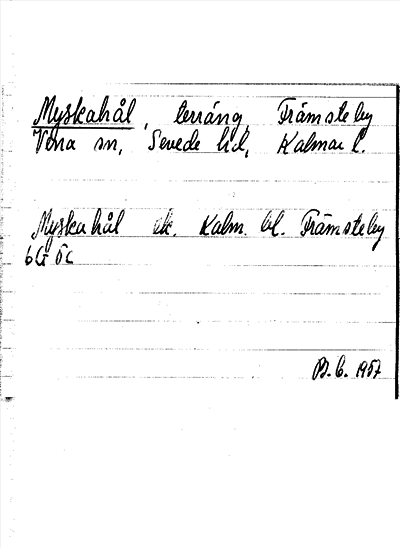 Myskahål, terräng, Främsteby
Vena sn, Sevede hd, Kalmar l.
Myskahål ek. Kalm. bl. Främsteby
6G 5c
B. G. 1957